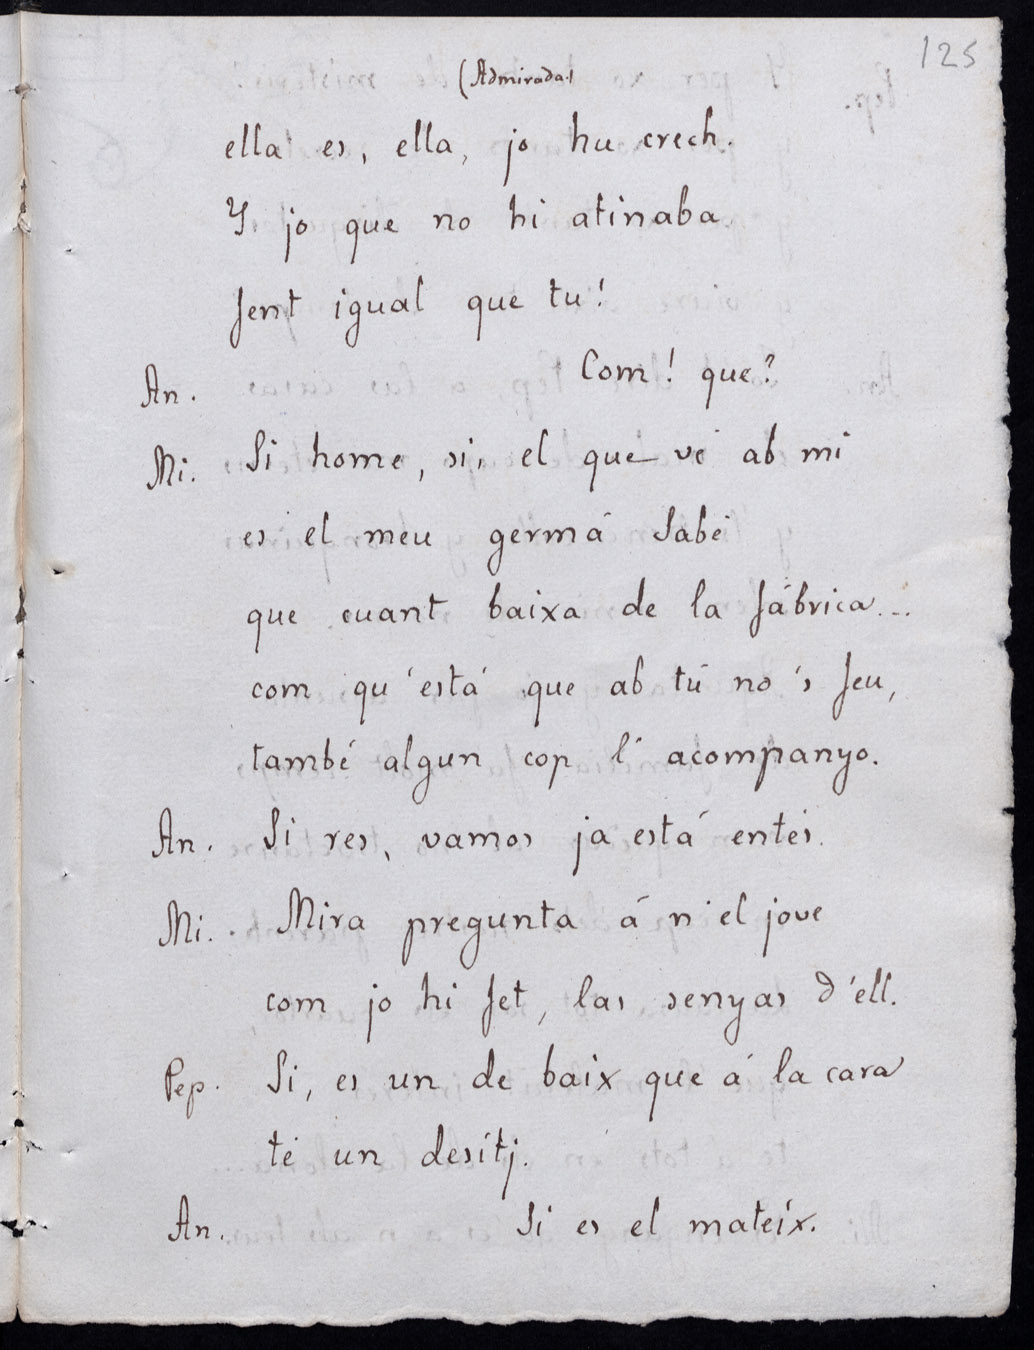 125
(Admirada)
ella es, ella, jo hu crech.
Y jo que no hi atinaba
fent igual que tu!
An. Com! que?
Mi. Si home, si, el que vé ab mi
es el meu germá Sabé
que cuant baixa de la fábrica...
com qu'está que ab tú no 's feu,
també algun cop l'acompanyo.
An. Si res, vamos ja está entés.
Mi. Mira pregunta á n'el jove
com jo hi fet, las senyas d'ell.
Pep. Si, es un de baix que á la cara
té un desitj.
An. Si es el mateix.